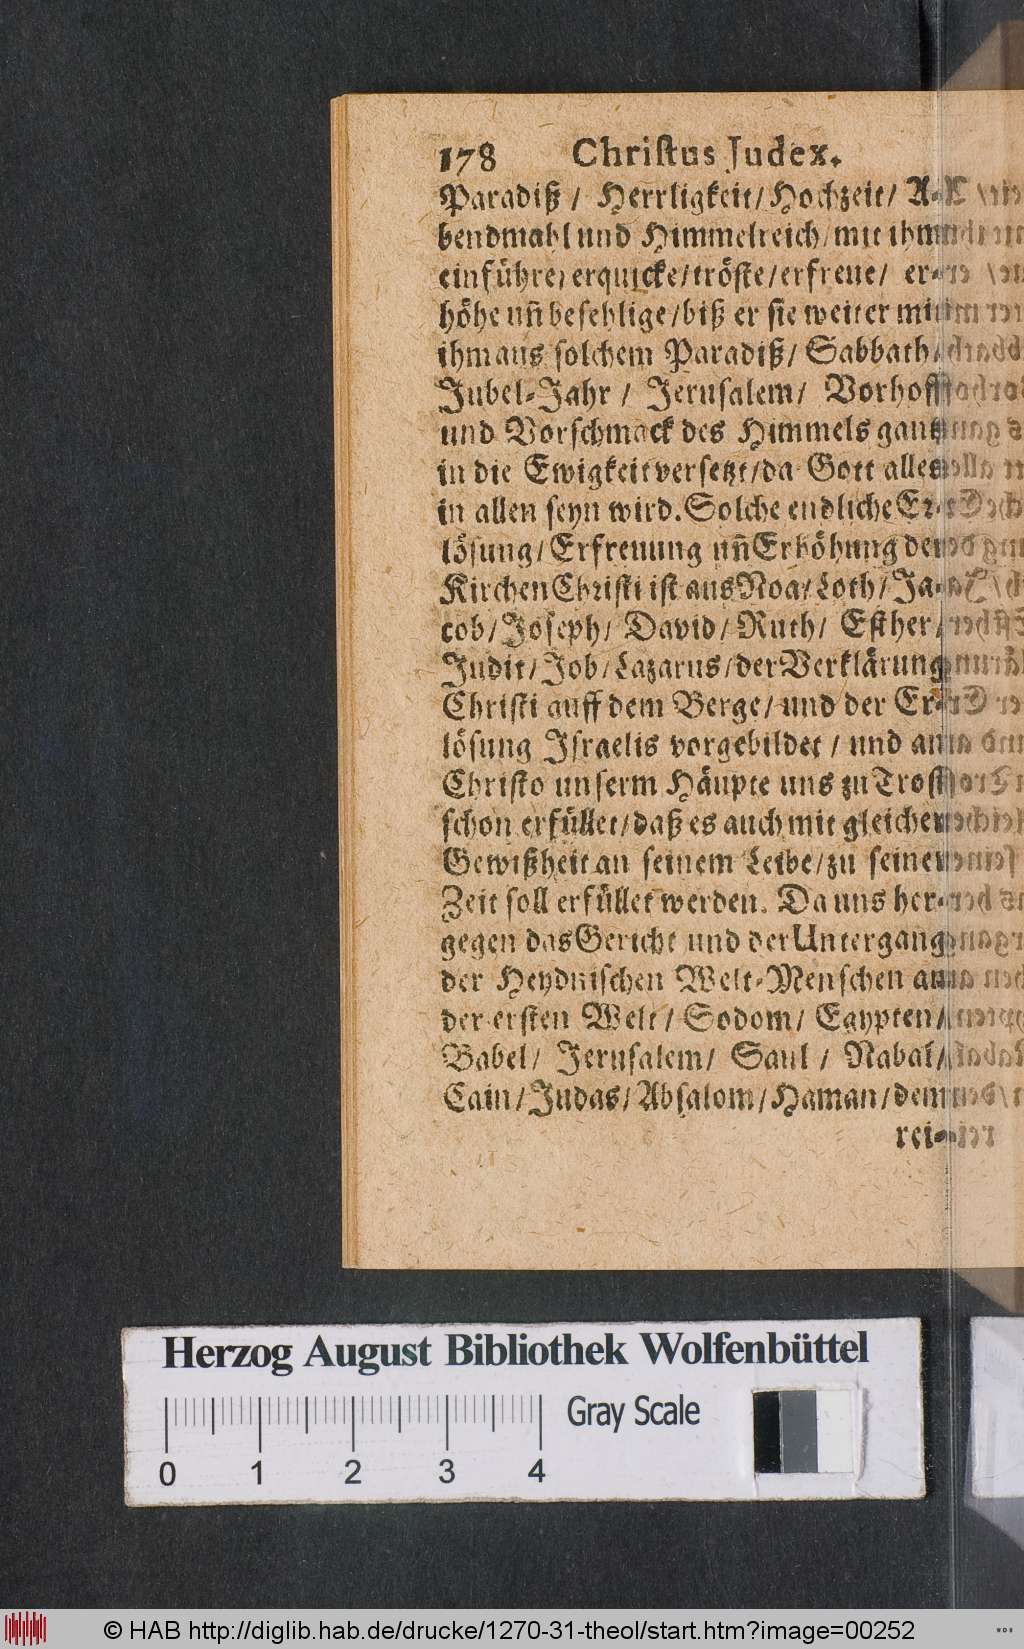 178 Chriſtus Judex.
Paradiß / Herrligkeit/Hochzeit/ A-
bendmahl und Himmelreich/mit ihm
einführe/ erquicke/tröſte/erfreue/ er-
höhe uñ beſeblige/biß er ſie weiter mit
ihm aus ſolchem Paradiß/ Sabbath/
Jubel-Jahr / Jeruſalem/ Vorhoff
und Vorſchmack des Himmels gantz
in die Ewigkeit verſetzt/da Gott alles
in allen ſeyn wird. Solche endliche Er-
löſung/Erfreuung uñ Erhöhung der
Kirchen Chriſti iſt aus Noa/Loth/Ja-
cob/Joſeph/ David/Ruth/ Eſther/
Judit/Job/Lazarus/der Verklärung
Chriſti auff dem Berge/und der Er-
löſung Iſraelis vorgebildet / und an
Chriſto unſerm Häupte uns zu Troſt
ſchon erfüllet/daß es auch mit gleicher
Gewißheit an ſeinem Leibe/zu ſeiner
Zeit ſoll erfüllet werden. Da uns her-
gegen das Gericht und der Untergang
der Heydniſchen Welt-Menſchen an
der erſten Welt/ Sodom/ Egypten/
Babel/ Jeruſalem/ Saul / Nabal/
Cain/Judas/Abſalom/Haman/dem
rei-
Herzog August Bibliothek Wolfenbüttel
Gray Scale
0 1 2 3 4
© HAB http://diglib.hab.de/drucke/1270-31-theol/start.htm?image=00252